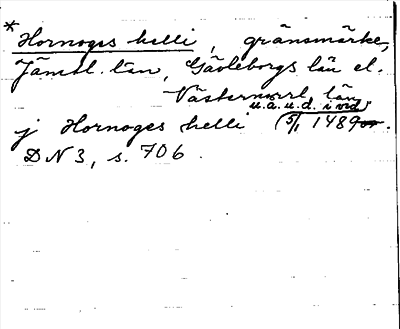 *Hornoges helli, gränsmärke,
Jämtl. län, Gävleborgs län el.
Västernorrl. län
u.a.u.d. i vid.
j Hornoges helli (5/1 1489 .
DN 3, s. 706.